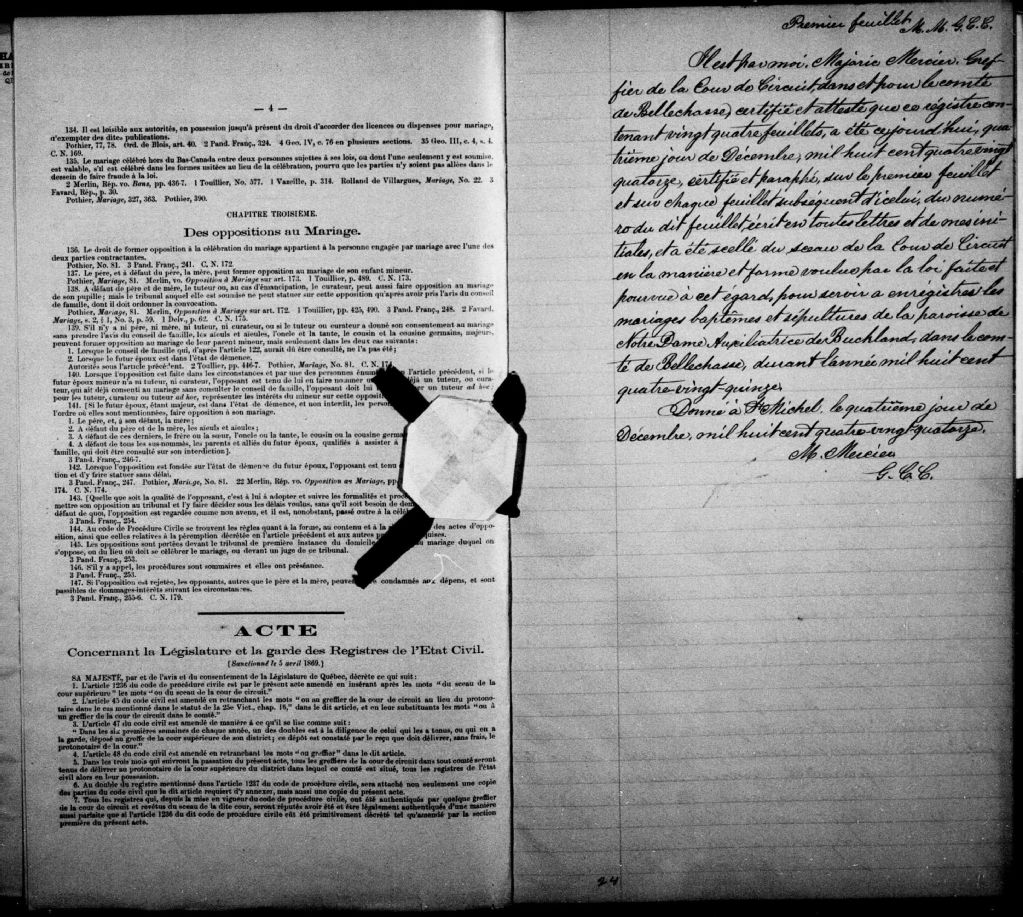 — 4 —
134. Il est loisible aux autorités, en possession jusqu'à présent du droit d'accorder des licences ou dispenses pour mariage,
d'exempter des dites publications.
Pothier, 77, 78. Ord. de Blois, art. 40. 2 Pand. Franç., 324. 4 Geo. IV, c. 76 en plusieurs sections. 35 Geo. III, c. 4, s. 4.
C. N. 169.
135. Le mariage célébré hors du Bas-Canada entre deux personnes sujettes à ses lois, ou dont l'une seulement y est soumise,
est valable, s'il est célébré dans les formes usitées au lieu de la célébration, pourvu que les parties n'y soient pas allées dans le
dessein de faire fraude à la loi.
2 Merlin, Rép. vo. Bans, pp. 436-7. 1 Touillier, No. 377. 1 Vazeille, p. 314. Rolland de Villargues, Mariage, No. 22. 3
Favard, Rép., p. 30.
Pothier, Mariage, 327, 363. Pothier, 390.
CHAPITRE TROISIÈME.
Des oppositions au Mariage.
136. Le droit de former opposition à la célébration du mariage appartient à la personne engagée par mariage avec l'une des
deux parties contractantes.
Pothier, No. 81. 3 Pand. Franç., 241. C. N. 172.
137. Le père, et à défaut du père, la mère, peut former opposition au mariage de son enfant mineur.
Pothier, Mariage, 81. Merlin, vo. Opposition à Mariage sur art. 173. 1 Touillier, p. 489. C. N. 173.
138. A défaut de père et de mère, le tuteur ou, au cas d'émancipation, le curateur, peut aussi faire opposition au mariage
de son pupile; mais le tribunal auquel elle est soumise ne peut statuer sur cette opposition qu'après avoir pris l'avis du conseil
de famille, dont il doit ordonner la convocation.
Pothier, Mariage, 81. Merlin, Opposition à Mariage sur art. 172. 1 Touillier, pp. 425, 490. 3 Pand. Franç., 248. 2 Favard,
Mariage, s. 2, § 1, No. 3, p. 59. 1 Delv., p. 62. C. N. 175.
139. S'il n'y a ni père, ni mère, ni tuteur, ni curateur, ou si le tuteur ou curateur a donné son consentement au mariage
sans prendre l'avis du conseil de famille, les aieuls et aieules, l'oncle et la tante, le cousin et la cousine germains, majeurs,
peuvent former opposition au mariage de leur parent mineur, mais seulement dans les deux cas suivants:
1. Lorsque le conseil de famille qui, d'après l'article 122, aurait dû être consulté, ne l'a pas été;
2. Lorsque le futur époux est dans l'état de démence.
Autorités sous l'article précédent. 2 Touillier, pp. 446-7. Pothier, Mariage, No. 81. C. N. 174.
140. Lorsque l'opposition est faite dans les circonstances et par une des personnes énum l'article précédent, si le
futur époux mineur n'a ni tuteur, ni curateur, l'opposant est tenu de lui en faire nommer déjà un tuteur, ou cura-
teur, qui ait déjà consenti au mariage sans consulter le conseil de famille, l'opposant doit lui er un tuteur ad hoc,
pour les tuteur, curateur ou tuteur ad hoc, représenter les intérêts du mineur sur cette opposit
141. [Si le futur époux, étant majeur, est dans l'état de démence, et non interdit, les person
l'ordre où elles sont mentionnées, faire opposition à son mariage.
1. Le père, et, à son défaut, la mère;
2. A défaut du père et de la mère, les aieuls et aieules;
3. A défaut de ces derniers, le frère ou la sœur, l'oncle ou la tante, le cousin ou la cousine germa
4. A défaut de tous les sus-nommés, les parents et alliés du futur époux, qualifiés à assister à
famille, qui doit être consulté sur son interdiction].
3 Pand. Franç., 246-7.
142. Lorsque l'opposition est fondée sur l'état de démence du futur époux, l'opposant est tenu
tion et d'y faire statuer sans délai.
3 Pand. Franç., 247. Pothier, Mariage, No. 81. 22 Merlin, Rép. vo. Opposition au Mariage, pp
174. C. N. 174.
143. [Quelle que soit la qualité de l'opposant, c'est à lui à adopter et suivre les formalités et proc
mettre son opposition au tribunal et l'y faire décider sous les délais voulus, sans qu'il soit besoin de dem
défaut de quoi, l'opposition est regardée comme non avenu, et il est, nonobstant, passé outre à la célé
3 Pand. Franç., 254.
144. Au code de Procédure Civile se trouvent les règles quant à la forme, au contenu et à la des actes d'oppo-
sition, ainsi que celles relatives à la péremption décrétée en l'article précédent et aux autres p uises.
145. Les oppositions sont portées devant le tribunal de première instance du domicile mariage duquel on
s'oppose, ou du lieu où doit se célébrer le mariage, ou devant un juge de ce tribunal.
3 Pand. Franç., 253.
146. S'il y a appel, les procédures sont sommaires et elles ont préséance.
3 Pand. Franç., 253.
147. Si l'opposition est rejetée, les opposants, autres que le père et la mère, peuve condamnés aux dépens, et sont
passibles de dommages-intérêts suivant les circonstances.
3 Pand. Franç., 255-6. C. N. 179.
ACTE
Concernant la Législature et la garde des Registres de l'Etat Civil.
(Sanctionné le 5 avril 1869.)
SA MAJESTÉ, par et de l'avis et du consentement de la Législature de Québec, décrète ce qui suit:
1. L'article 1236 du code de procédure civile est par le présent acte amendé en insérant après les mots "du sceau de la
cour supérieure" les mots "ou du sceau de la cour de circuit."
2. L'article 45 du code civil est amendé en retranchant les mots "ou au greffier de la cour de circuit au lieu du protono-
taire dans le cas mentionné dans le statut de la 25e Vict., chap. 16," dans le dit article, et en leur substituants les mots "ou à
un greffier de la cour de circuit dans le comté."
3. L'article 47 du code civil est amendé de manière à ce qu'il se lise comme suit:
"Dans les six premières semaines de chaque année, un des doubles est à la diligence de celui qui les a tenus, ou qui en a
la garde, déposé au greffe de la cour supérieure de son district; ce dépôt est constaté par le reçu que doit délivrer, sans frais, le
protonotaire de la cour."
4. L'article 48 du code civil est amendé en retranchant les mots "ou greffier" dans le dit article.
5. Dans les trois mois qui suivront la passation du présent acte, tous les greffiers de la cour de circuit dans tout comté seront
tenus de délivrer au protonotaire de la cour supérieure du district dans lequel ce comté est situé, tous les registres de l'état
civil alors en leur possession.
6. Au double du registre mentionné dans l'article 1237 du code de procédure civile, sera attaché non seulement une copie
des parties du code civil que le dit article requiert d'y annexer, mais aussi une copie du présent acte.
7. Tous les registres qui, depuis la mise en vigueur du code de procédure civile, ont été authentiqués par quelque greffier
de la cour de circuit et revêtus du sceau de la dite cour, seront réputés avoir été et être légalement authentiqués d'une manière
aussi parfaite que si l'article 1236 du dit code de procédure civile eût été primitivement décrété tel qu'amendé par la section
première du présent acte.
Premier feuillet M. M. G. C. C.
Il est par moi, Majoric Mercier, Gref-
fier de la Cour de Circuit, dans et pour le comté
de Bellechasse, certifié et attesté que ce régistre con-
tenant vingt quatre feuillets, a été cejourd'hui, qua-
trième jour de Décembre, mil huit cent quatre vingt
quatorze, certifié et paraphé, sur le premier feuillet
et sur chaque feuillet subsequent d'icelui, du numé-
ro du dit feuillet, écrit en toutes lettres et de mes ini-
tiales, et a été scellé du sceau de la Cour de Circuit
en la manière et forme voulue par la loi faite et
pourvue à cet égard, pour servir a enrégistrer les
mariages baptêmes et sépultures de la paroisse de
Notre Dame Auxiliatrice de Buckland, dans le com-
té de Bellechasse, durant l'année mil huit cent
quatre-vingt-quinze.
Donné à St Michel, le quatrième jour de
Décembre, mil huit cent quatre vingt-quatorze.
M. Mercier
G. C. C.
24